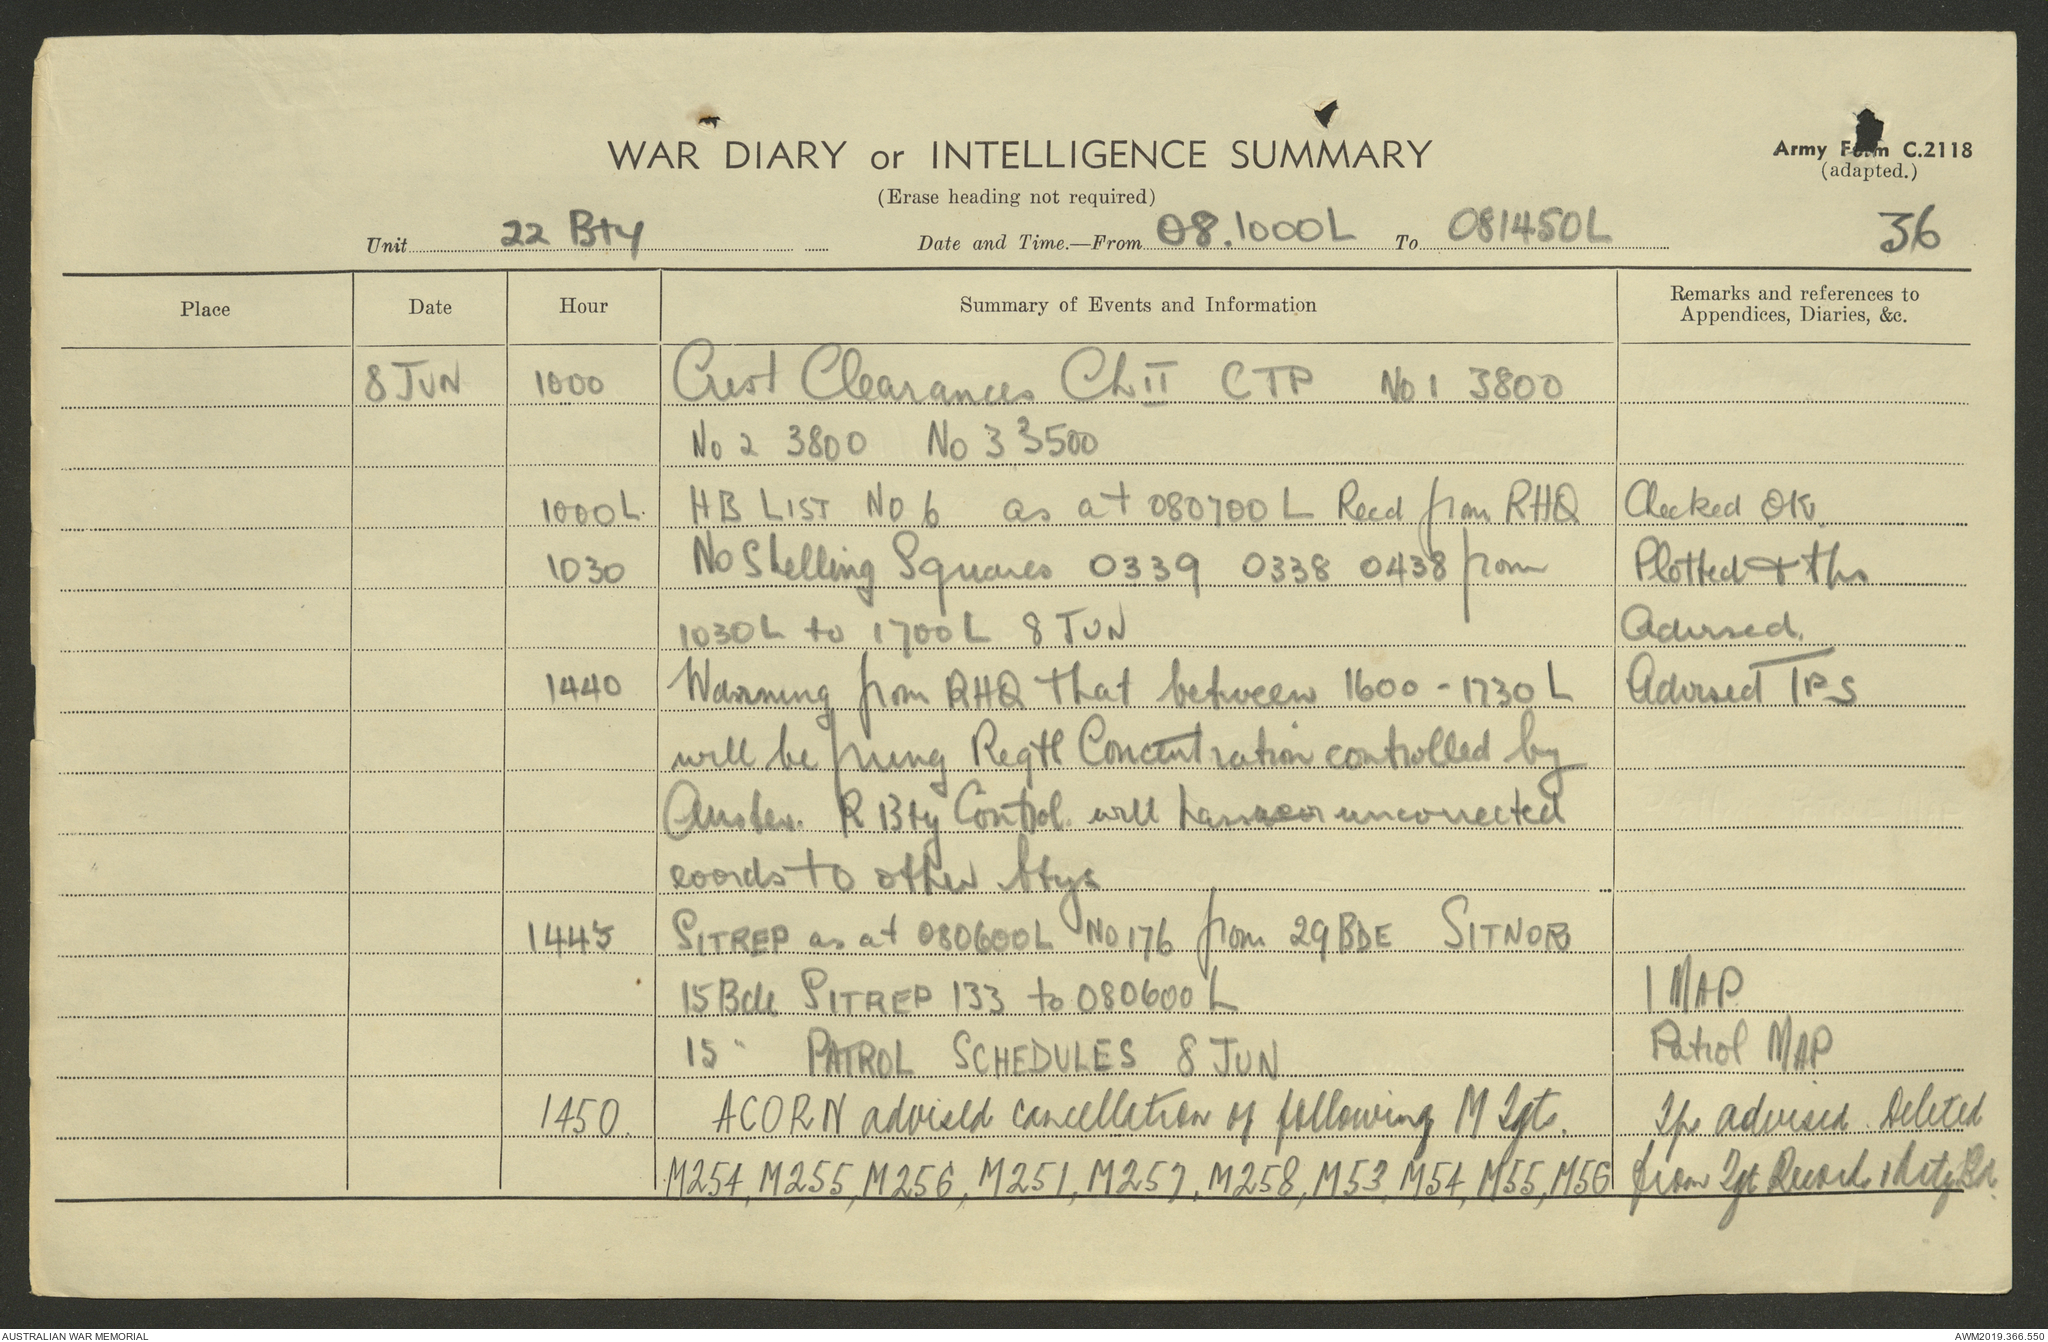 WAR DIARY or INTELLIGENCE SUMMARY
(Erase heading not required)
Army Form C.2118
(adapted.)
36
Unit 22 Bty Date and Time.—From 08.1000L To 081450L
Place Date Hour Summary of Events and Information Remarks and references to
Appendices, Diaries, &c.
8 JUN 1000 Crest Clearances Ch II CTP No 1 3800
No 2 3800 No 3 3500
1000L. HB LIST NO 6 as at 080700L Recd from RHQ Checked OK.
1030 No Shelling Squares 0339 0338 0438 from Plotted & tps
1030L to 1700L 8 JUN Advised.
1440 Warning from RHQ that between 1600-1730L Advised TPS
will be firing Regtl Concentration controlled by
Auster. R Bty Control. will uncorrected
coords to other btys
1445 SITREP as at 080600L NO 176 from 29 BDE SITNOR
15 Bde SITREP 133 to 080600L 1 MAP.
15 " PATROL SCHEDULES 8 JUN Patrol MAP
1450. ACORN advised cancellation of following M Tgts. Tps advised. Deleted
M254, M255, M256, M251, M257, M258, M53, M54, M55, M56 from Tgt Records & Arty Bd.
AUSTRALIAN WAR MEMORIAL
AWM2019.366.550